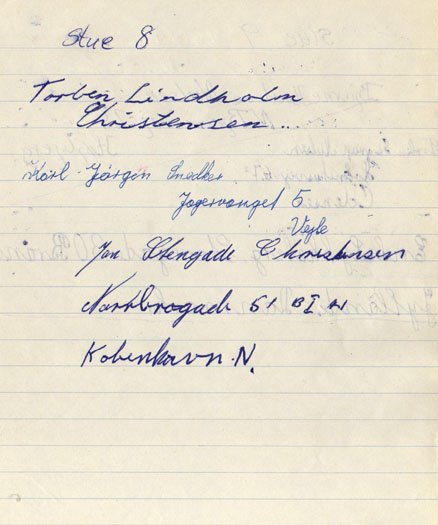 Stue 8
Torben Lindholm
Christensen..
Karl-Jörgen Snedker
Jagervanget 5
Vejle
Jan Stengade Christensen
Nordbrogade 51 BI H
København.N.